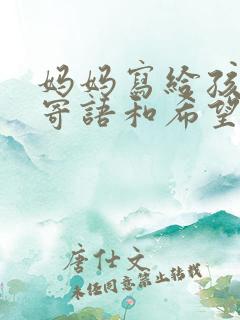 妈妈寫給孩
寄語和希望
唐仕文
未任同意禁止转载